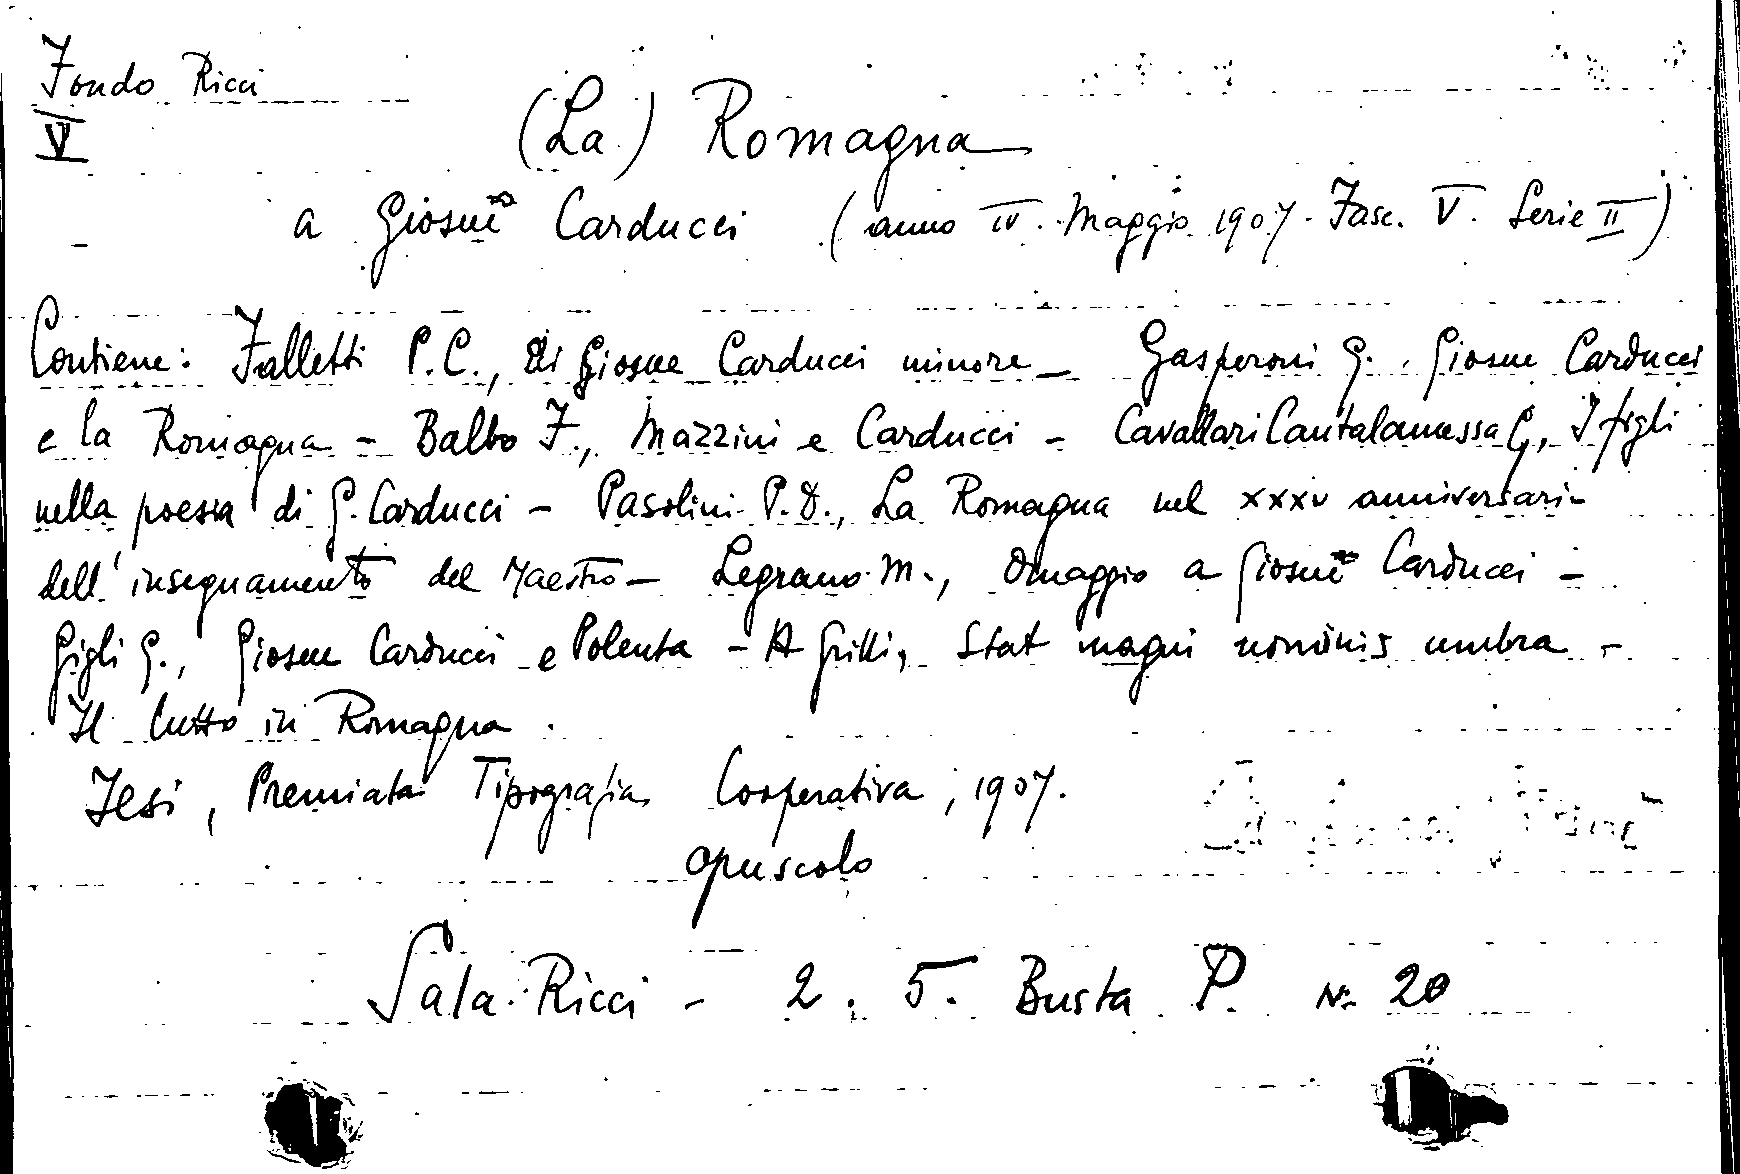 Fondo Ricci
V
(La) Romagna
a Giosuè Carducci (anno IV. Maggio 1907. Fasc. V. Serie II)
Contiene: Falletti P.C., Di Giosue Carducci minore – Gasperoni G. Giosue Carducci
e la Romagna – Balbo F., Mazzini e Carducci – Cavallari Cantalamessa G., I figli
nella poesia di G. Carducci – Pasolini P.D., La Romagna nel XXXV anniversari-
dell'insegnamento del Maestro – Legrano M., Omaggio a Giosuè Carducci –
Gigli G., Giosue Carducci e Polenta – A Grilli, Stat magni nominis umbra –
Il tutto in Romagna.
Jesi, Premiata Tipografia Cooperativa, 1907.
opuscolo
Sala Ricci – 2. 5. Busta P. N. 20